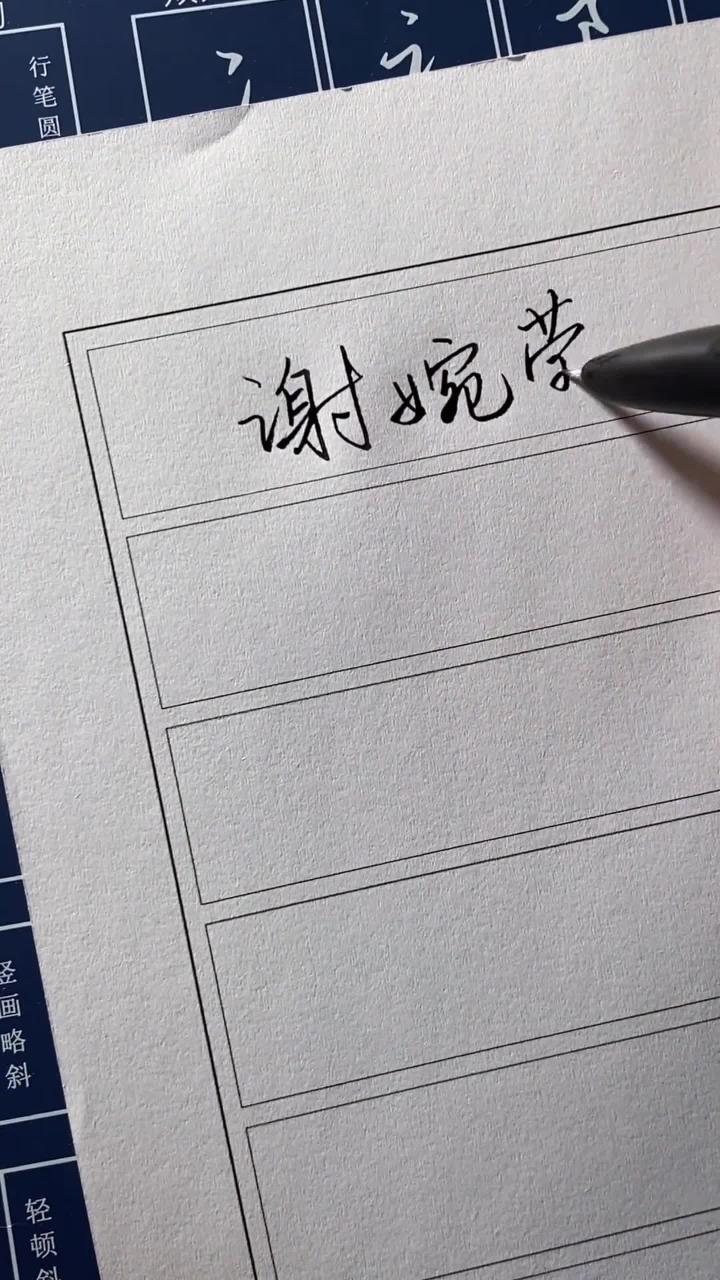 行笔圆
谢婉莹
竖画略斜
轻顿斜